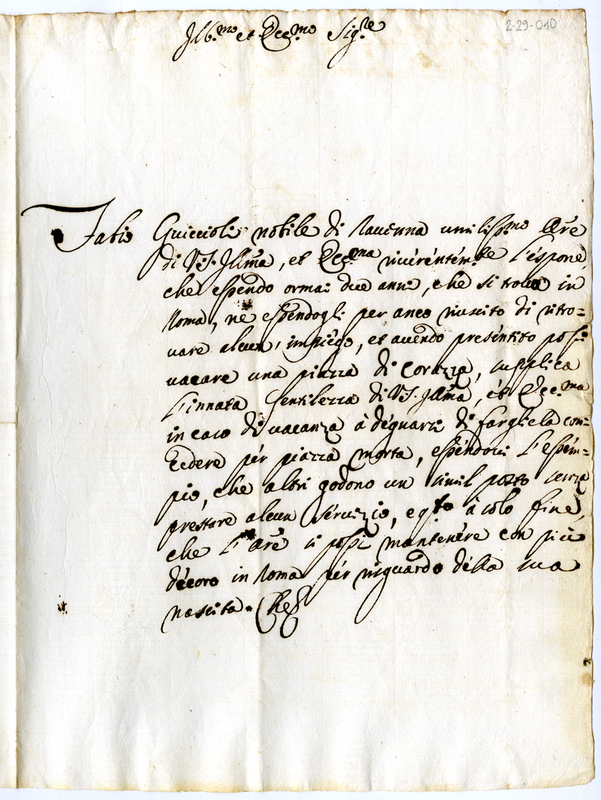 2-29-010
Ill.mo et Ecc.mo Sig.re
Fabio Guiccioli nobile di Ravenna umilissmo Ore
di V.S. Illma, et Ecc.ma riverentem.te l'espone,
che essendo ormai due anni, che si trova in
Roma, nè essendogli per anco riuscito di ritro=
vare alcun impiego, et avendo presentito possi
vacare una piazza di Corazza, supplica
l'innata Gentilezza di V.S. Illma, et Ecc.ma
in caso di vacanza à degnarsi di fargliela con=
cedere per piazza morta, essendovi l'essem=
pio, che altri godono un simil posto senza
prestare alcun servizio, e q.to à solo fine,
che l'Ore si possi mantenere con più
decoro in Roma per risguardo della sua
nascita. Che